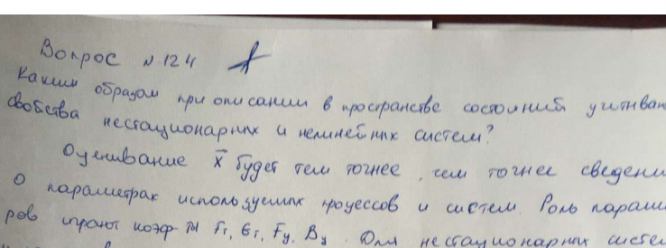 Вопрос №124
Каким образом при описании в пространстве состояний учитыва
свойства нестационарных и нелинейных систем?
Оценивание x̄ будет тем точнее, чем точнее сведени
о параметрах используемых процессов и систем. Роль парам
ров играют коэф-ты Fт, Gт, Fу, Bу. Для нестационарных систе